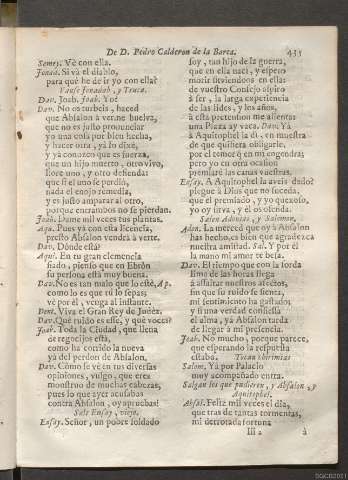 De D. Pedro Calderon de la Barca. 435
Semey. Vè con ella.
Jonad. Si và el diablo,
para què he de ir yo con ella?
Vanse Jonadab, y Teuca.
Dav. Joab. Joab. Yo?
Dav. No os turbeis, haced
que Absalon à verme buelva,
que no es justo pronunciar
yo una cosa por bien hecha,
y hacer otra, ya lo dixe,
y ya conozco que es fuerza,
que un hijo muerto, otro vivo,
llore uno, y otro defienda:
que si el uno se perdiò,
nada el enojo remedia,
y es justo amparar al otro,
porque entrambos no se pierdan.
Joab. Dame mil veces tus plantas.
Aqu. Pues yà con esta licencia,
presto Absalon vendrà à verte.
Dav. Dònde està?
Aqui. En tu gran clemencia
fiado, pienso que en Ebròn
su persona està muy buena.
Dav. No es tan malo que lo estè, Ap.
como lo es que tù lo sepas;
vè por èl, venga al instante.
Dent. Viva el Gran Rey de Judèa.
Dav. Què ruido es esse, y què voces?
Joab. Toda la Ciudad, que llena
de regocijos està,
como ha corrido la nueva
yà del perdon de Absalon.
Dav. Còmo se vè en tus diversas
opiniones, vulgo, que eres
monstruo de muchas cabezas,
pues lo que ayer acusabas
contra Absalon, oy apruebas!
Sale Ensay, viejo.
Ensay. Señor, un pobre soldado
soy, tan hijo de la guerra,
que en ella nacì, y espero
morir sirviendoos en ella:
de vuestro Consejo aspiro
à ser, la larga experiencia
de las lides, y los años,
à esta pretension me alientan:
una Plaza ay vaca. Dav. Yà
à Aquitophel la dì, en muestra
de que quisiera obligarle,
por el temor que en mì engendra;
pero yo en otra ocasion
premiarè las canas vuestras.
Ensay. A Aquitophel la aveis dado?
plegue à Dios que no suceda,
que el premiado, y yo quexoso,
yo oy sirva, y èl os ofenda.
Salen Adonias, y Salomon.
Adon. La merced que oy à Absalon
has hecho, es bien que agradezca
nuestra amistad. Sal. Y por èl
la mano mi amor te besa.
Dav. El tiempo que con la sorda
lima de las horas llega
à assaltar nuestros afectos,
sin que su ruido se sienta,
mi sentimiento ha gastado;
y si una verdad confiessa
el alma, yà Absalon tarda
de llegar à mi presencia.
Joab. No mucho, porque parece,
que esperando la respuesta
estaba. Tocan chirimias
Salom. Yà por Palacio
muy acompañado entra.
Salgan los que pudieren, y Absalon, y
Aquitophel.
Absal. Feliz mil veces el dia,
que tras de tantas tormentas,
mi derrotada fortuna
Iii 2 à